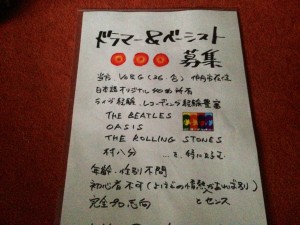 ドラマー&ベーシスト
募集
当方 Vo&G (26, 名)
日本語オリジナル 50曲 所有
ライヴ経験、レコーディング経験豊富
THE BEATLES
OASIS
THE ROLLING STONES
村八分 ...
年齢・性別不問
初心者不可 (よほどの情熱があれば別)
完全プロ志向 とセンス